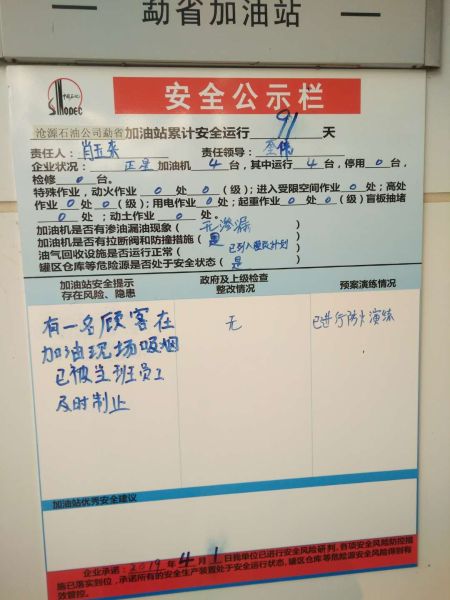 勐省加油站
中国石化
SINOPEC
安全公示栏
沧源石油公司勐省加油站累计安全运行 91 天
责任人： 责任领导：
企业状况： 正常 加油机 4 台，其中运行 4 台，停用 0 台，
检修 0 台。
特殊作业，动火作业 0 处 0 （级）；进入受限空间作业 0 处；高处
作业 0 处 0 （级）；用电作业 0 处；起重作业 0 处 0 （级）盲板抽堵
0 处；动土作业 0 处。
加油机是否有渗油漏油现象（ 无渗漏 ）
加油机是否有拉断阀和防撞措施（ 是 ）
油气回收设施是否运行正常（ 已列入整改计划 ）
罐区仓库等危险源是否处于安全状态（ 是 ）
加油站安全提示
存在风险、隐患
政府及上级检查
整改情况
预案演练情况
有一名顾客在
加油现场吸烟
已被当班员工
及时制止
无
已进行防火演练
加油站优秀安全建议
企业承诺：2019 年 4 月 1 日我单位已进行安全风险研判，各项安全风险防控措
施已落实到位，承诺所有的安全生产装置处于安全运行状态，罐区仓库等危险源安全风险得到有
效管控。